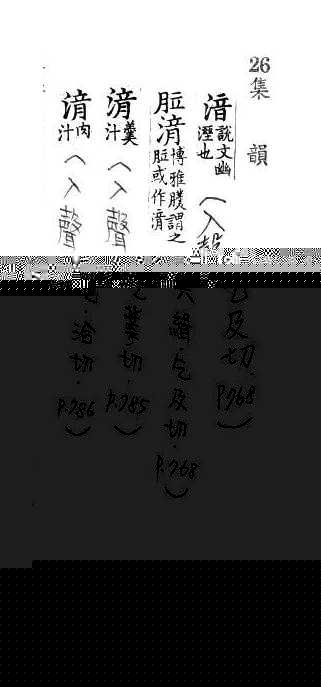 26 集韻
湆 說文幽溼也（入聲 及切.P.768）
湇 博雅 謂之 或作湇 緝.乞及切.P.768）
湇 羹汁（入聲 葉切.P.785）
湇 肉汁（入聲 洽切.P.786）